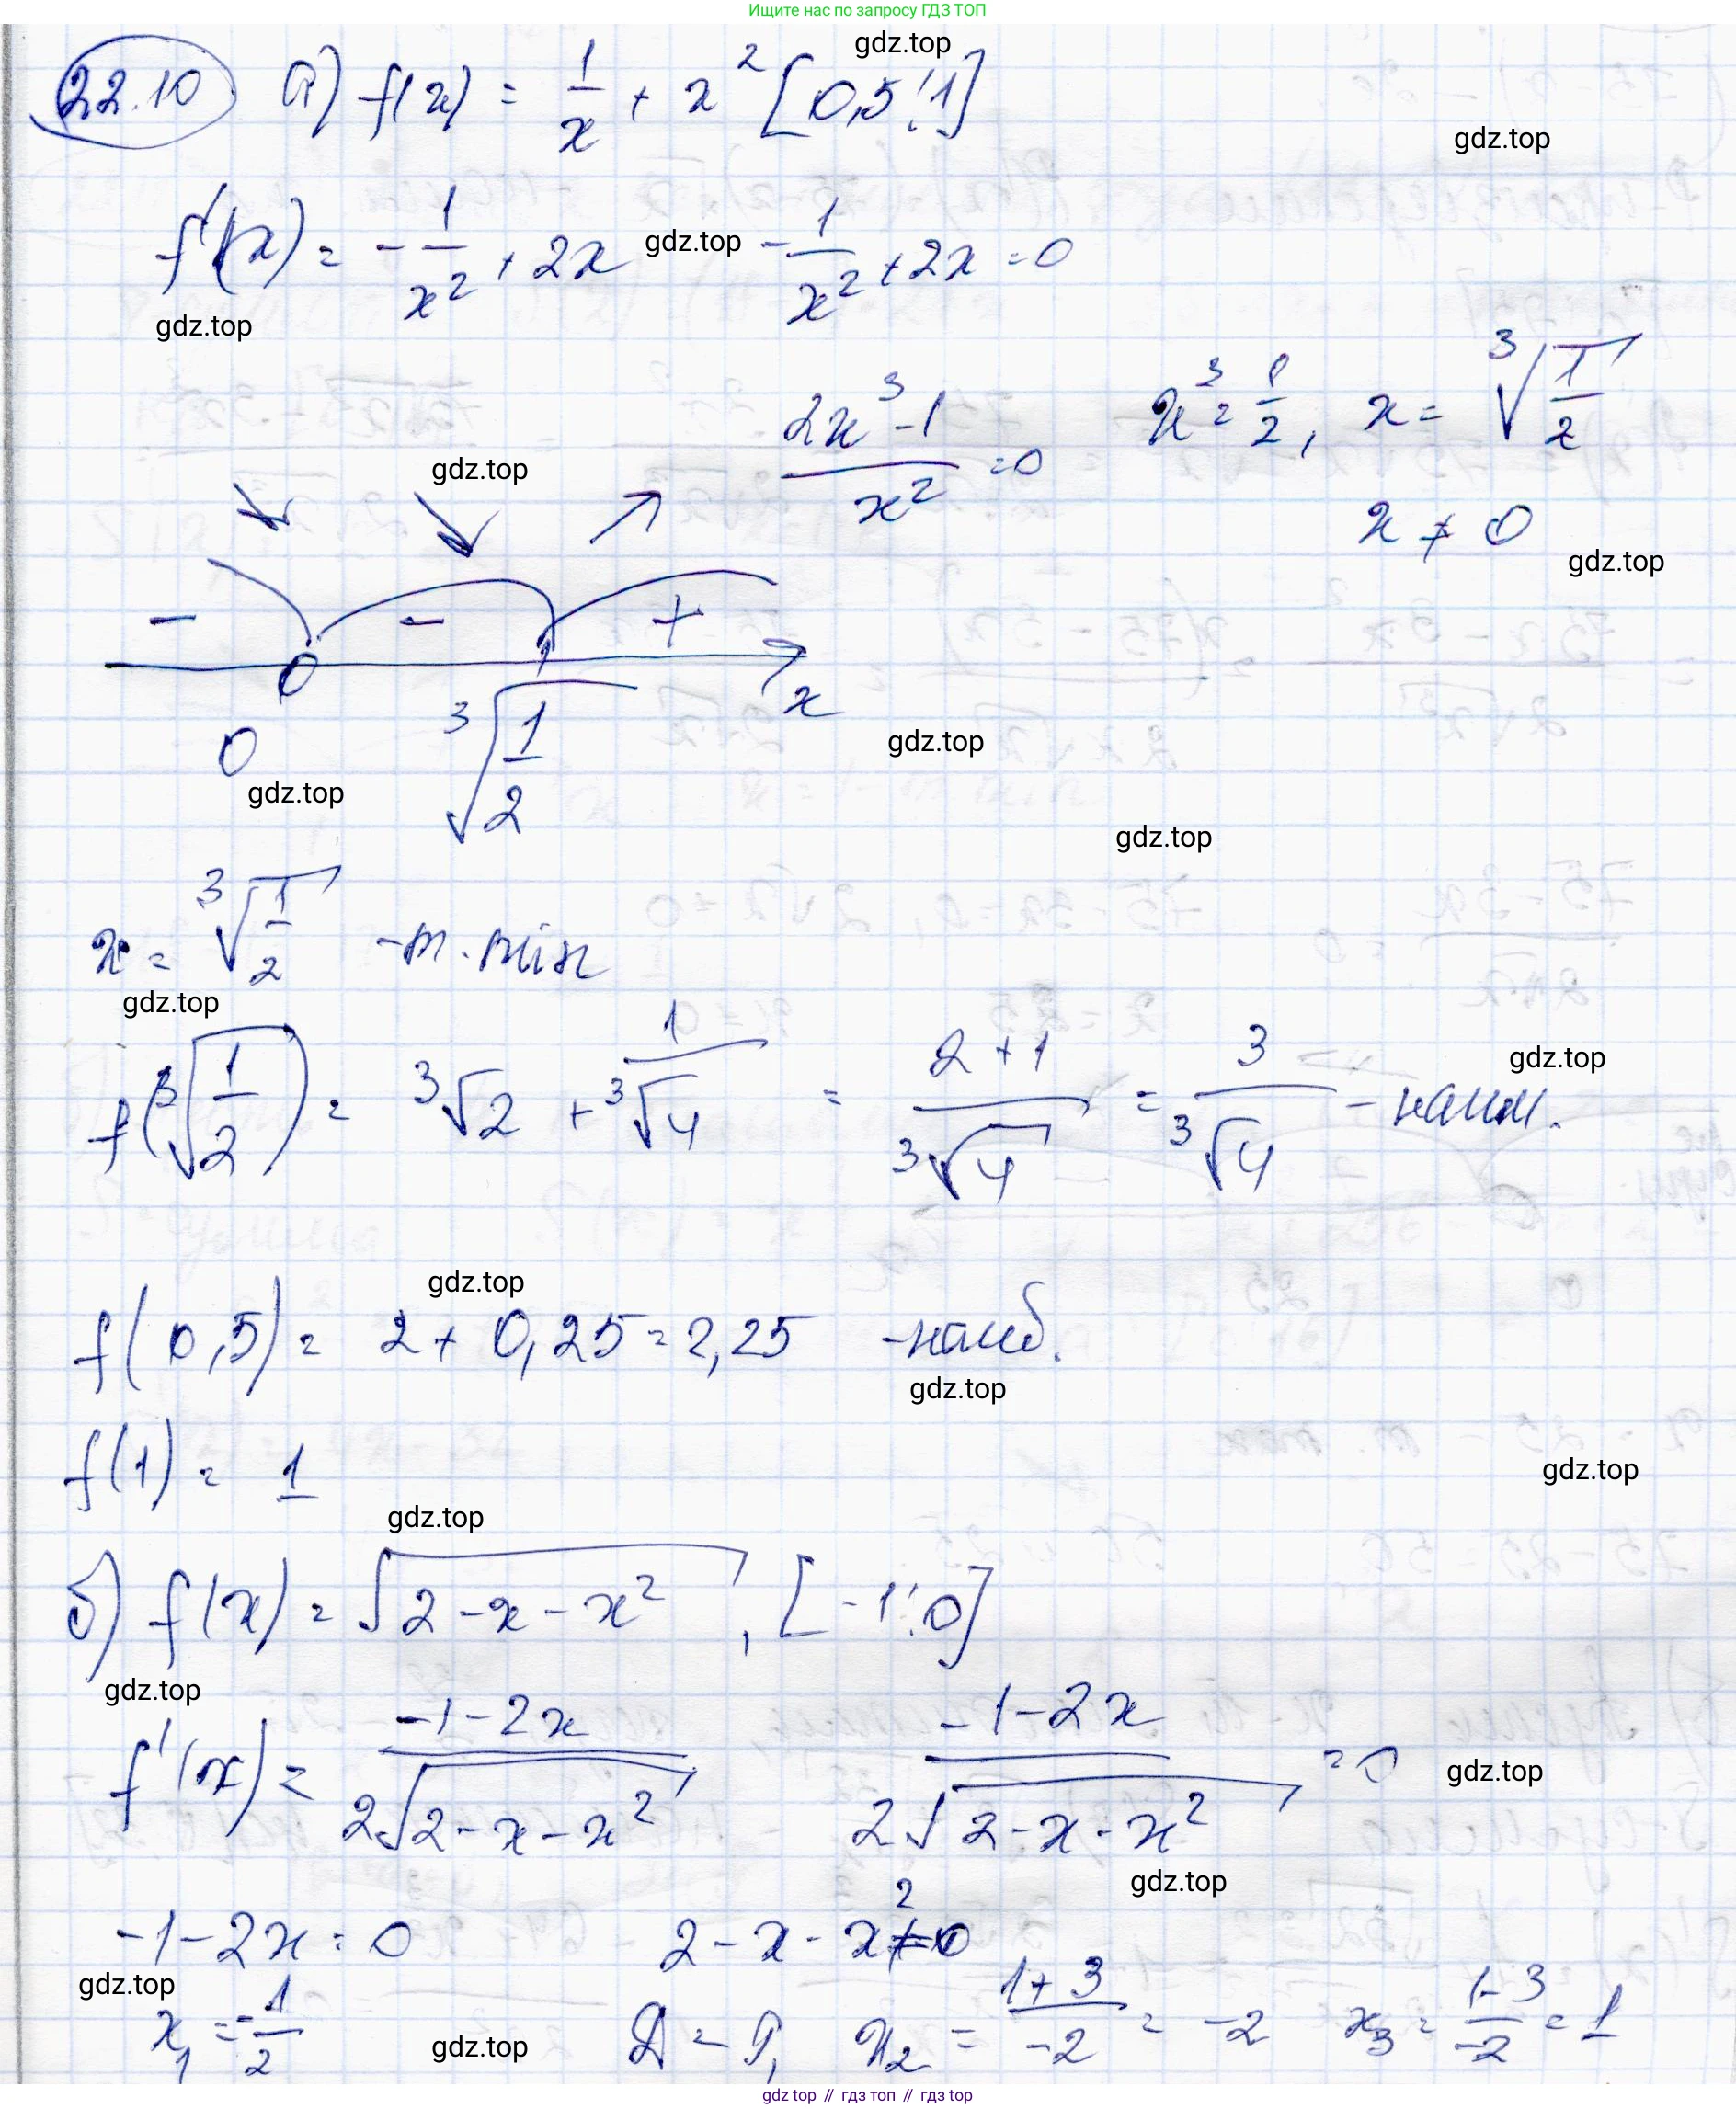 Ищите нас по запросу ГДЗ ТОП
gdz.top
22.10 а) f(x) = 1/x + x² [0,5; 1]
gdz.top
f'(x) = -1/x² + 2x gdz.top -1/x² + 2x = 0
gdz.top
(2x³-1)/x² = 0 x³ = 1/2, x = ∛(1/2)
gdz.top
x ≠ 0
gdz.top
- - +
x
0 ∛(1/2)
gdz.top
gdz.top
gdz.top
x = ∛(1/2) - т. min
gdz.top
f(∛(1/2)) = ∛2 + 1/∛4 = (2+1)/∛4 = 3/∛4 - наим.
gdz.top
gdz.top
f(0,5) = 2 + 0,25 = 2,25 - наиб.
gdz.top
f(1) = 1
gdz.top
gdz.top
б) f(x) = √(2-x-x²), [-1; 0]
gdz.top
f'(x) = (-1-2x)/(2√(2-x-x²)) (-1-2x)/(2√(2-x-x²)) = 0
gdz.top
gdz.top
-1-2x = 0 2-x-x² ≠ 0
gdz.top
x₁ = -1/2 D = 9, x₂ = (1+3)/-2 = -2 x₃ = (1-3)/-2 = 1
gdz.top
gdz top // гдз топ // gdz top